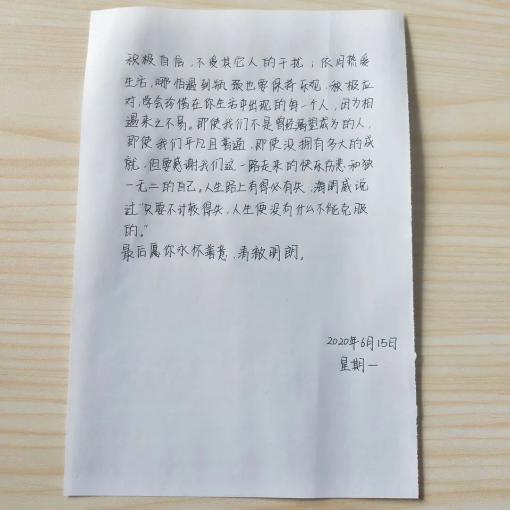 积极自信，不受其它人的干扰；依旧热爱
生活，哪怕遇到瓶颈也要保持乐观，积极应
对，学会珍惜在你生活中出现的每一个人，因为相
遇来之不易。即使我们不是曾经渴望成为的人，
即使我们平凡且普通，即使没拥有多大的成
就，但要感谢我们这一路走来的快乐伤悲和独
一无二的自己。人生路上有得必有失，海明威说
过"只要不计较得失，人生便没有什么不能克服
的。"
最后愿你永怀善意，清澈明朗。
2020年6月15日
星期一